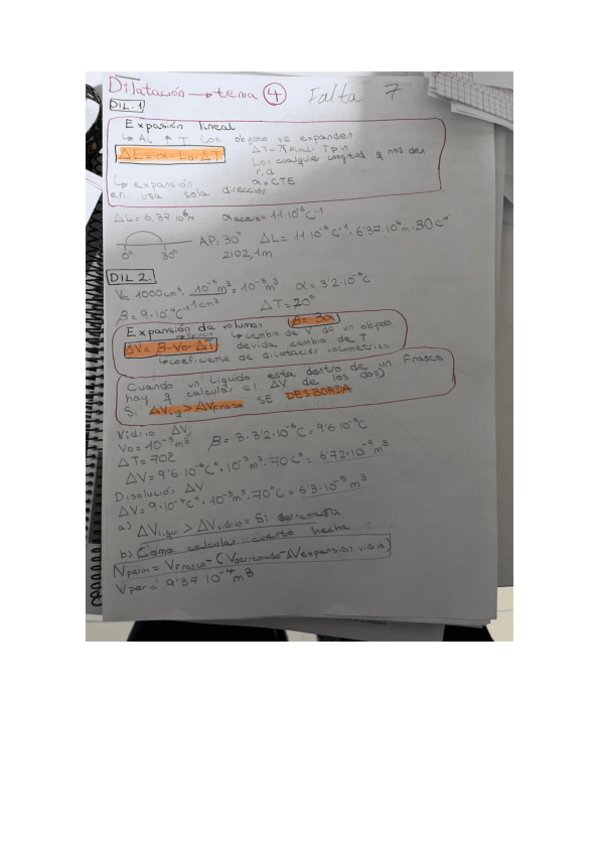 Dilatación → tema 4 Falta 7
DIL. 1
Expasión lineal
↳ AL ↑ T Los objetos se expanden
ΔL = α · Lo · ΔT
ΔT = T Final - T
Lo = cualquier longitud q nos den
α = CTE
↳ expansión
en una sola dirección
ΔL = 6,37 10⁶m α acero = 11·10⁻⁶C⁻¹
0° 30° AP = 30° ΔL = 11·10⁻⁶C⁻¹ · 6'37·10⁶m · 30C°
2102,1m
DIL 2.
V = 1000cm³ · 10⁻⁶m³ / 1cm³ = 10⁻³m³ α = 3'2·10⁻⁶C
β = 9·10⁻⁴C⁻¹ ΔT = 20°
Expansión de volumen β = 3α
ΔV = β · Vo · ΔT ↳ cambio de V de un objeto
devida cambio de T
↳ coeficiente de dilatación volumetrico
Cuando un liquido esta dentro de un frasco
hay q calcular el ΔV de los dos)
Si ΔVliq > ΔVfrasco SE DESBORDA
Vidrio ΔV
Vo = 10⁻³m³ β = 3·3'2·10⁻⁶C = 9'6·10⁻⁶C
ΔT = 70
ΔV = 9'6·10⁻⁶C° · 10⁻³m³ · 70C° = 6'72·10⁻⁷m³
Disolución ΔV
ΔV = 9·10⁻⁴C° · 10⁻³m³ · 70°C = 6'3·10⁻⁵m³
a) ΔVliqui > ΔVvidrio = Si derramara
b) Cómo calcular cuanto hecha
Vperm = Vfrasco - (Vderramado - ΔVexpansion vidrio)
Vper = 9'37 10⁻⁴m³